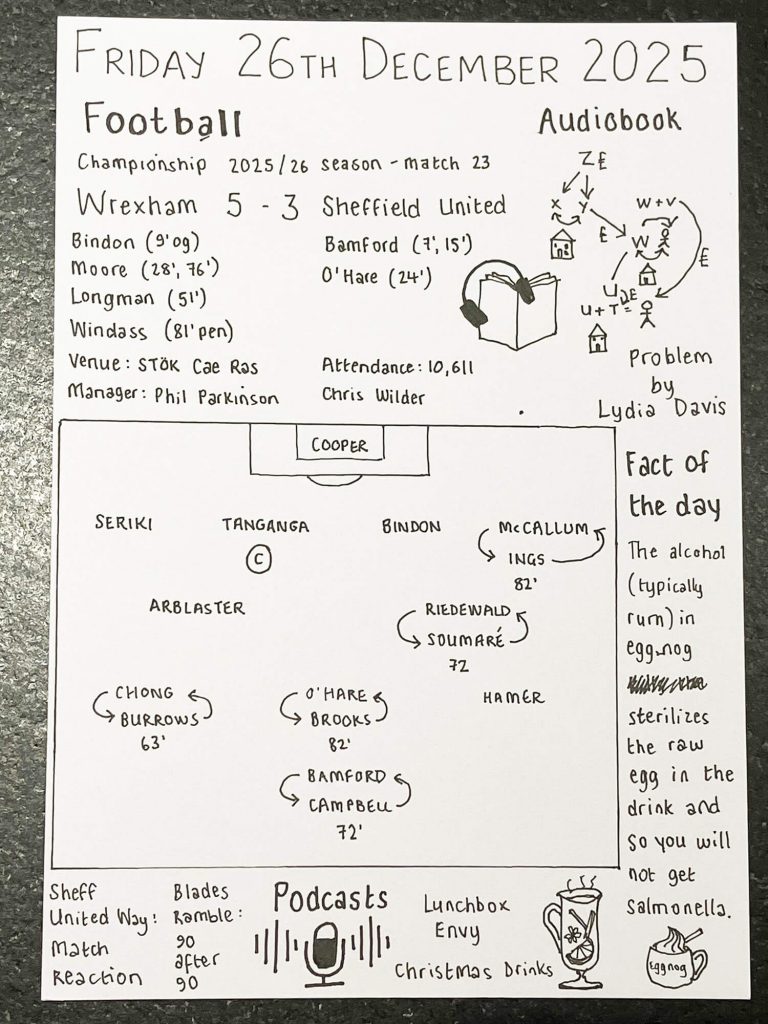 FRIDAY 26TH DECEMBER 2025
Football
Championship 2025/26 season - match 23
Wrexham 5 - 3 Sheffield United
Bindon (9' og)
Bamford (7', 15')
Moore (28', 76')
O'Hare (24')
Longman (51')
Windass (81' pen)
Venue: STōK Cae Ras
Attendance: 10,611
Manager: Phil Parkinson
Chris Wilder
Audiobook
Z £
X Y
W + V
£
W
£
U
2£
U + T =
Problem
by
Lydia Davis
COOPER
SERIKI TANGANGA BINDON McCALLUM
C
INGS
82'
ARBLASTER
RIEDEWALD
SOUMARÉ
72
CHONG
BURROWS
63'
O'HARE
BROOKS
82'
HAMER
BAMFORD
CAMPBELL
72'
Fact of
the day
The alcohol
(typically
rum) in
eggnog
sterilizes
the raw
egg in the
drink and
so you will
not get
Salmonella.
Eggnog
Sheff
United Way:
Match
Reaction
Blades
Ramble:
90
after
90
Podcasts
Lunchbox
Envy
Christmas Drinks